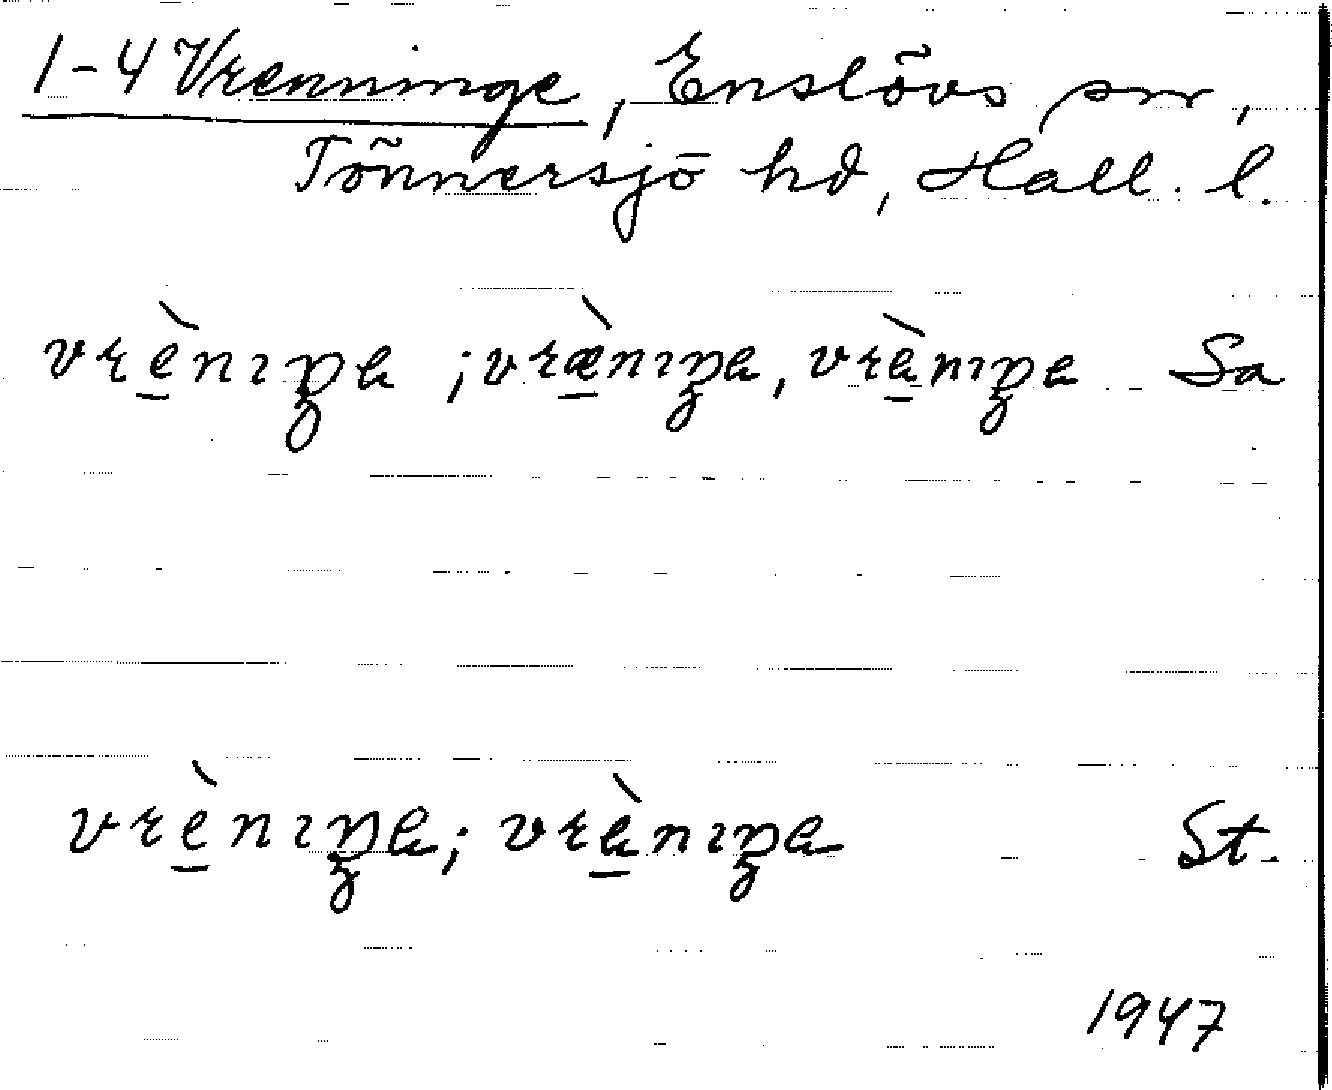 1-4 Vrenninge, Enslövs sn,
Tönnersjö hd, Hall. l.
vrè̱nıŋa ; vræ̱̀nıŋa, vrè̱nıŋa Sa
vrè̱nıŋa; vrè̱nıŋa St.
1947